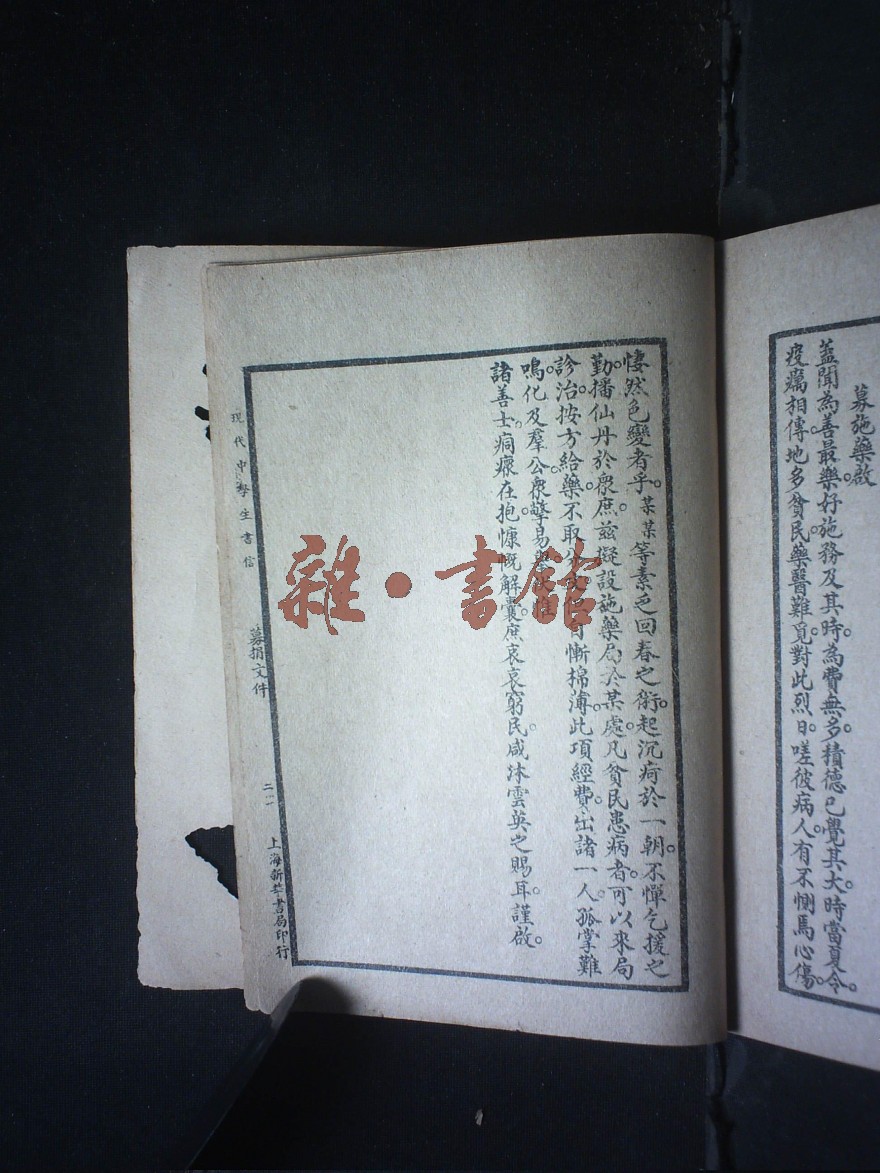 募施藥啟
蓋聞為善最樂。好施務及其時。為費無多。積德已覺其大。時當夏令。
疫癘相傳。地多貧民。藥醫難覓。對此烈日。嗟彼病人。有不惻焉心傷。
悽然色變者乎。某某等素乏回春之術。起沉疴於一朝。不憚乞援之
勤。播仙丹於眾庶。茲擬設施藥局於某處。凡貧民患病者。可以來局
診治。按方給藥。不取分文。自慚棉薄。此項經費。出諸一人。孤掌難
鳴。化及羣公。眾擎易舉。惟
諸善士。痌瘝在抱。慷慨解囊。庶哀哀窮民。咸沐雲英之賜耳。謹啟。
現代中學生書信
募捐文件
上海新華書局印行
雜·書館